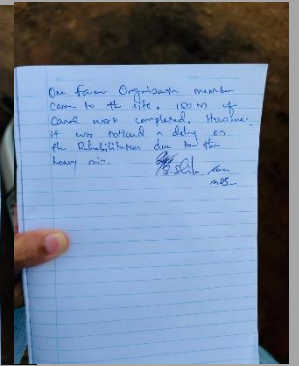 One Farmer Organisation member
came to the site. 150 m of
canal work completed. However,
it was noticed a delay on
the Rehabilitation due to the
heavy rain.